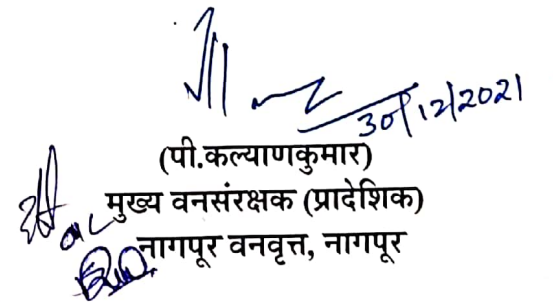 30/12/2021
(पी.कल्याणकुमार)
मुख्य वनसंरक्षक (प्रादेशिक)
नागपूर वनवृत्त, नागपूर